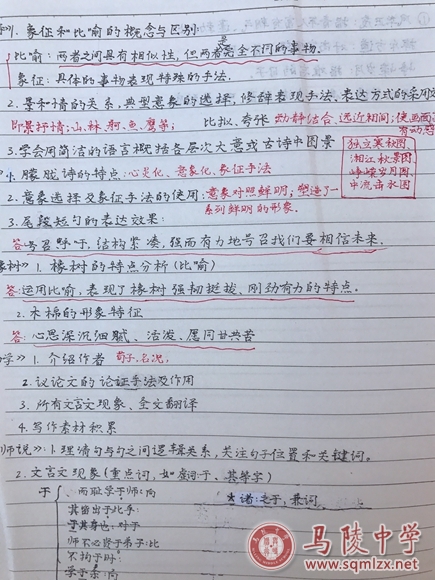 1. 象征和比喻的概念与区别
比喻:两者之间具有相似性,但两者是完全不同的事物.
象征:具体的事物表现特殊的手法.
2.景和情的关系,典型意象的选择,修辞表现手法、表达方式的采用
即景抒情:山、林、舸、鱼、鹰等;
比拟、夸张 动静结合、远近相间,使画面
3.学会用简洁的语言概括各层次大意或古诗中图景
独立寒秋图
湘江秋景图
峥嵘岁月图
中流击水图
1.朦胧诗的特点:心灵化、意象化、象征手法
2.意象选择及象征手法的使用:意象对照鲜明,塑造了一
系列鲜明的形象.
3.尾段短句的表达效果:
答:号召呼吁,结构紧凑,强而有力地号召我们要相信未来.
橡树》1.橡树的特点分析(比喻)
答:运用比喻,表现了橡树强韧挺拔、刚劲有力的特点.
2.木棉的形象特征
答:心思深沉细腻、活泼、愿同甘共苦
学》1.介绍作者 荀子,名况,
2.议论文的论证手法及作用
3.所有文言文现象、全文翻译
4.写作素材积累
师说》:1.理清句与句之间逻辑关系,关注句子位置和关键词。
2.文言文现象(重点词,如虚词于、其等字)
于 、而耻学于师:向
大诸:之于,兼词
其皆出于此乎
于其身也:对于
师不必贤于弟子:比
不拘于时:
学于余:向
马陵中学
www.sqmlzx.net